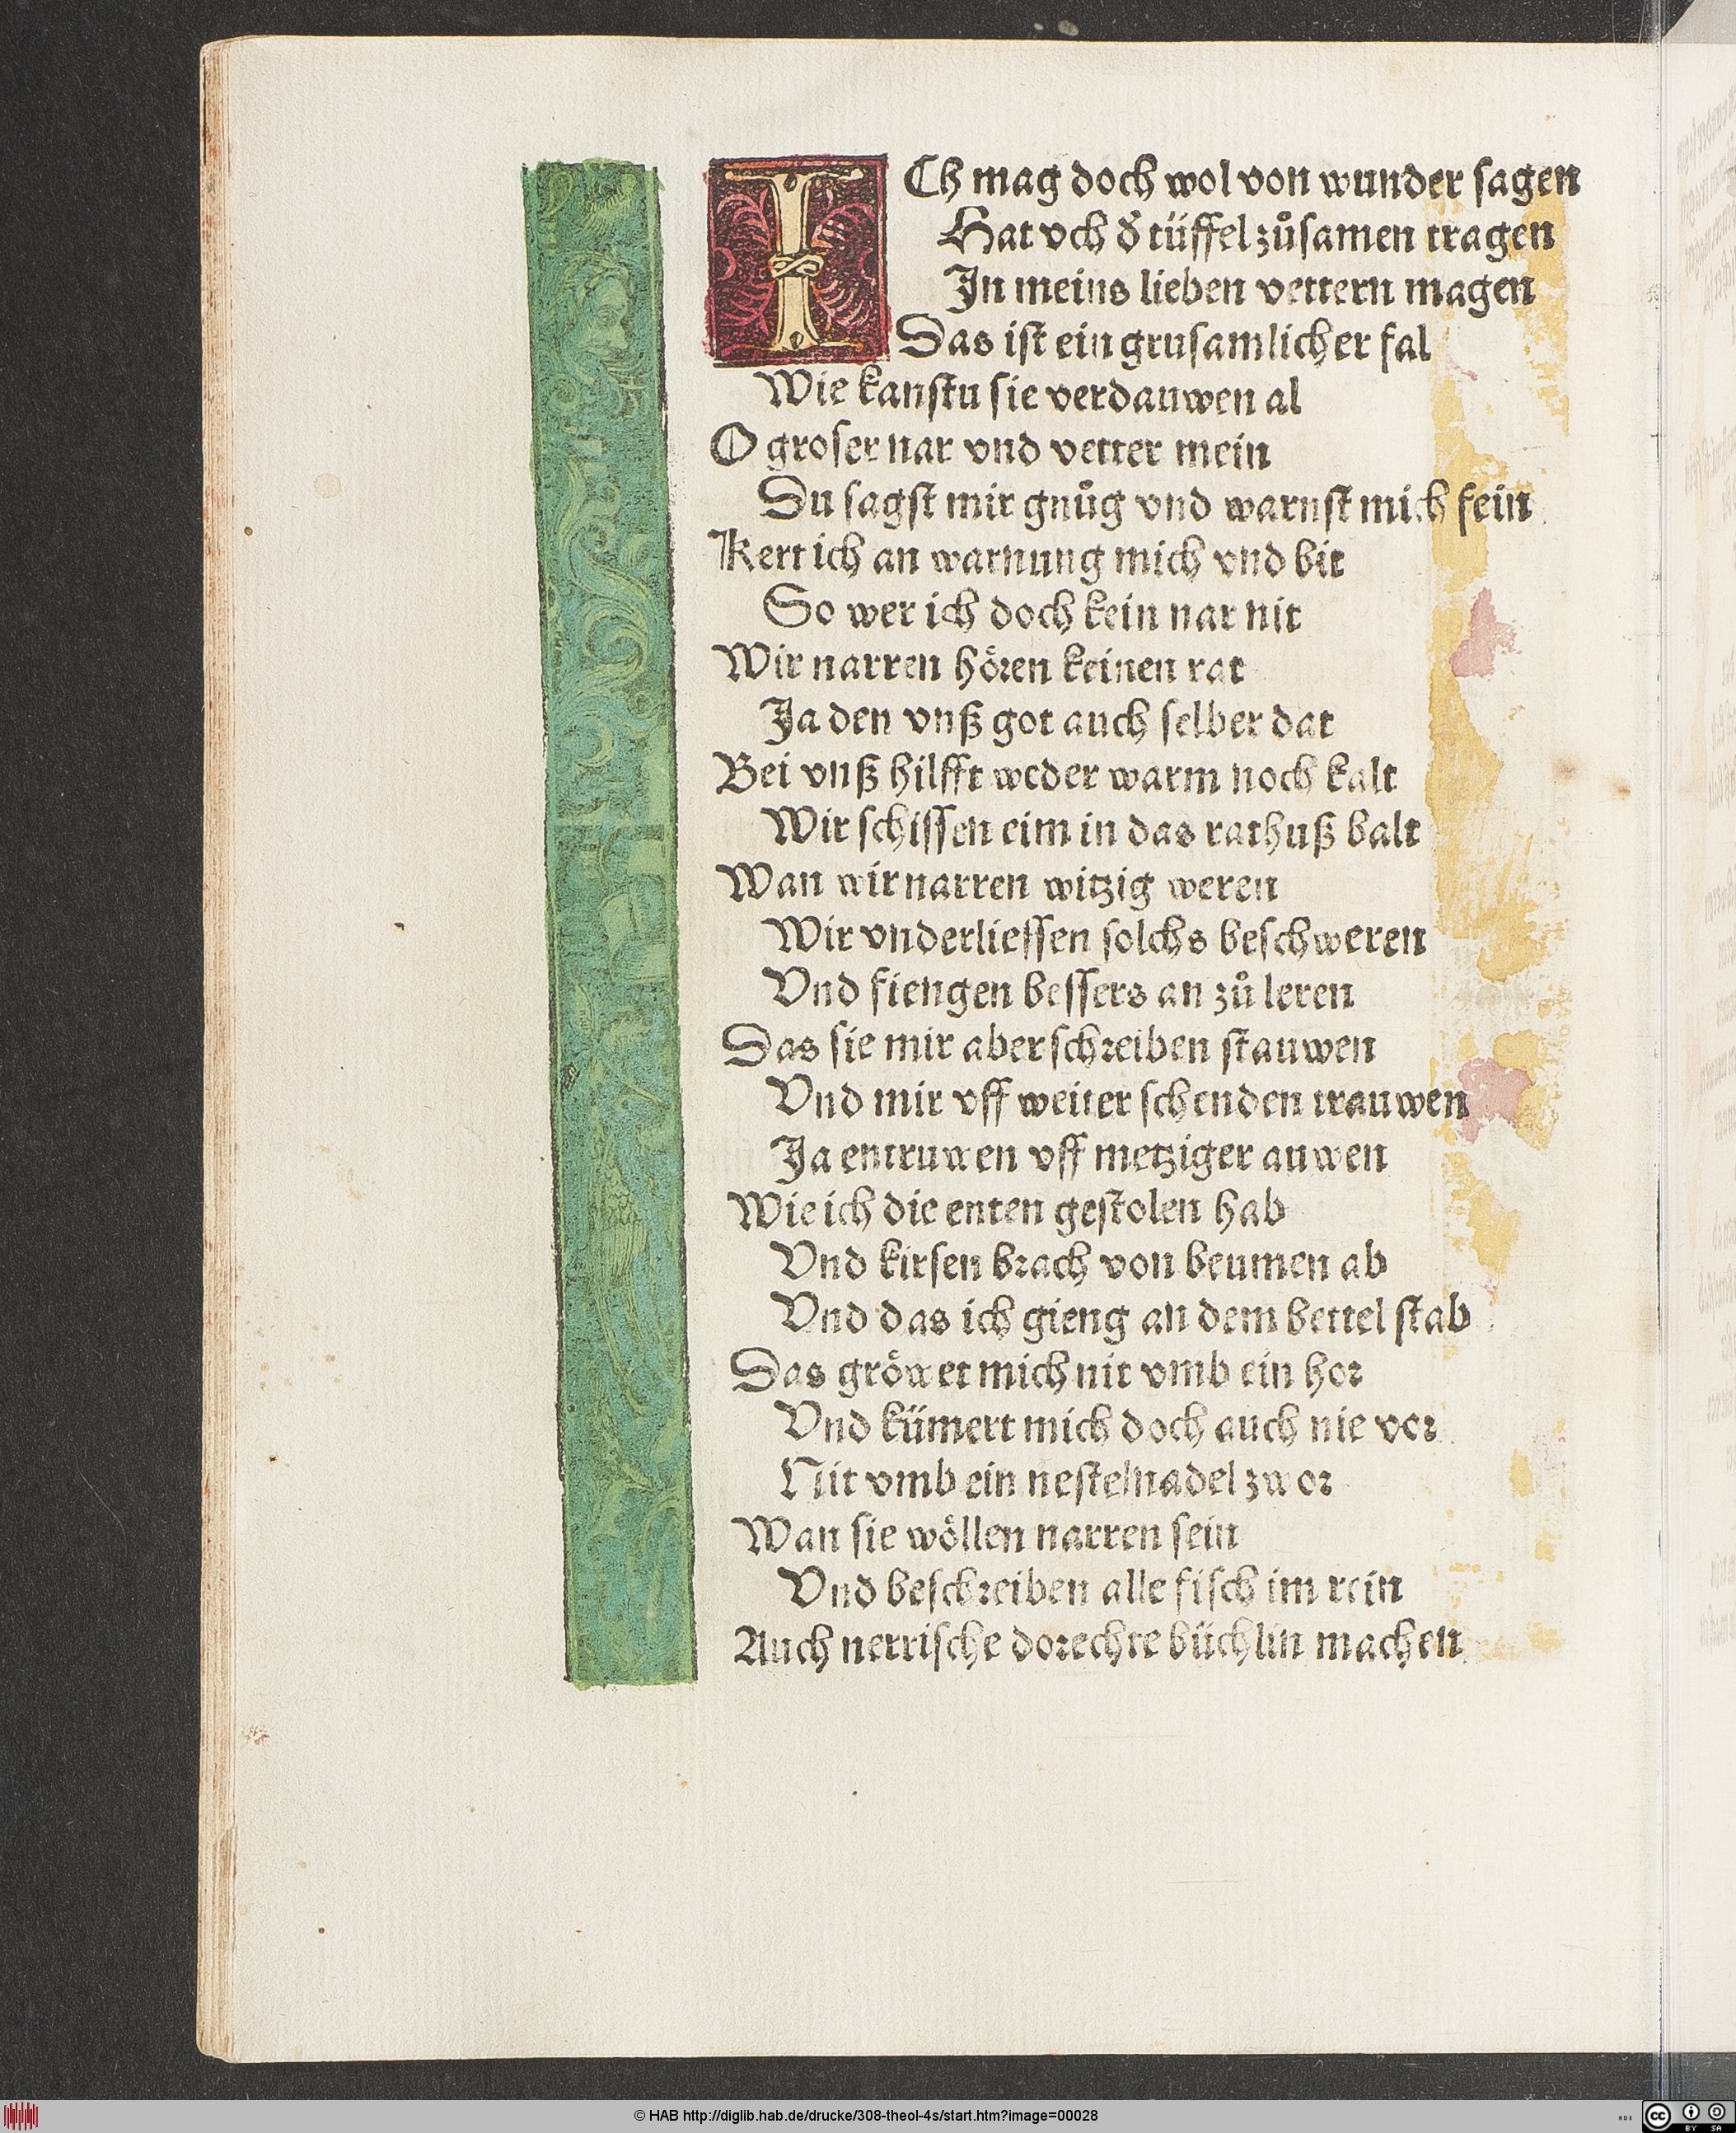 ICh mag doch wol von wunder sagen
Hat vch d̕ tüffel zůsamen tragen
In meins lieben vettern magen
Das ist ein grusamlicher fal
Wie kanstu sie verdauwen al
O groser nar vnd vetter mein
Du sagst mir gnůg vnd warnst mich fein
Kert ich an warnung mich vnd bit
So wer ich doch kein nar nit
Wir narren hören keinen rat
Ja den vnß got auch selber dat
Bei vnß hilfft weder warm noch kalt
Wir schissen eim in das rathuß balt
Wan wir narren witzig weren
Wir vnderliessen solchs beschweren
Vnd fiengen bessers an zů leren
Das sie mir aber schreiben stauwen
Vnd mir vff weiter schenden trauwen
Ja entruwen vff metziger auwen
Wie ich die enten gestolen hab
Vnd kirsen brach von beumen ab
Vnd das ich gieng an dem bettel stab
Das gröwet mich nit vmb ein hor
Vnd kümert mich doch auch nie vor
Nit vmb ein nestelnadel zwor
Wan sie wöllen narren sein
Vnd beschreiben alle fisch im rein
Auch nerrische dorechte büchlin machen
© HAB http://diglib.hab.de/drucke/308-theol-4s/start.htm?image=00028
cc BY SA